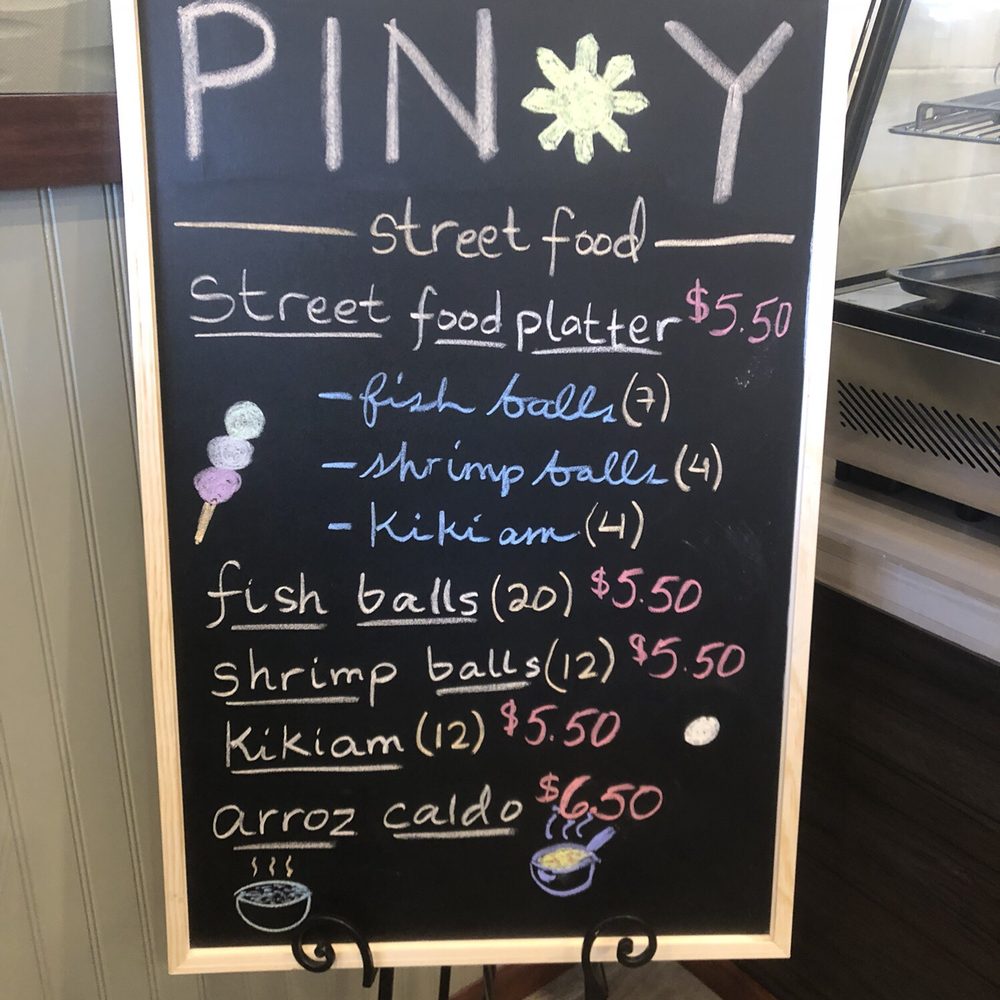 PINOY
street food
Street food platter $5.50
- fish balls (7)
- shrimp balls (4)
- Kikiam (4)
fish balls (20) $5.50
shrimp balls (12) $5.50
Kikiam (12) $5.50
arroz caldo $6.50